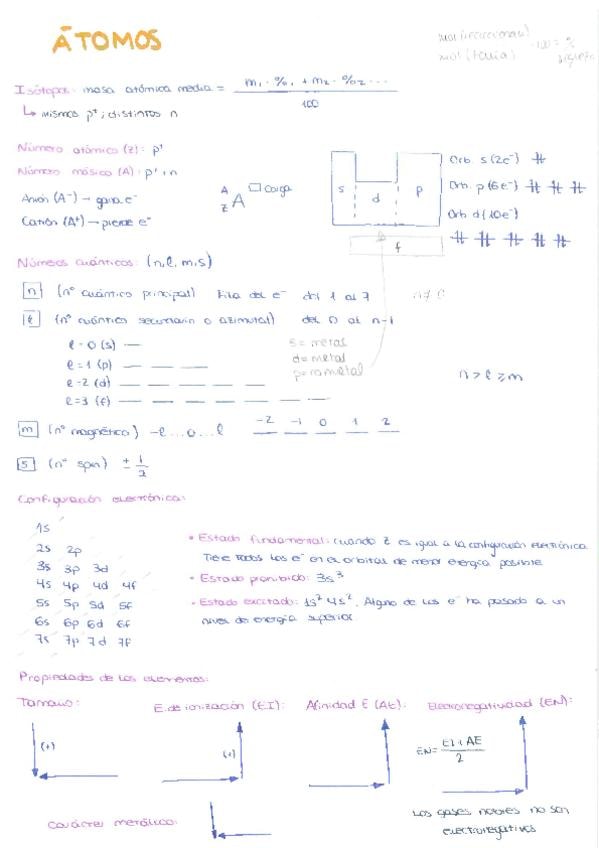 ÁTOMOS
Isótopos: masa atómica media = m₁ · %₁ + m₂ · %₂ ... / 100
↳ mismos p⁺; distintos n
Número atómico (Z): p⁺
Número másico (A): p⁺ + n
Anión (A⁻) → gana e⁻
Catión (A⁺) → pierde e⁻
A
Z A □ carga
s d p
f
Orb. s (2e⁻)
Orb. p (6e⁻)
Orb. d (10e⁻)
Números cuánticos: (n, l, m, s)
n (nº cuántico principal) Fila del e⁻ del 1 al 7
l (nº cuántico secundario o azimutal) del 0 al n-1
l = 0 (s)
l = 1 (p)
l = 2 (d)
l = 3 (f)
s = metal
d = metal
p = no metal
n > l ≥ m
m (nº magnético) -l ... 0 ... l -2 -1 0 1 2
s (nº spin) ± 1/2
Configuración electrónica:
1s
2s 2p
3s 3p 3d
4s 4p 4d 4f
5s 5p 5d 5f
6s 6p 6d 6f
7s 7p 7d 7f
• Estado fundamental: cuando Z es igual a la configuración electrónica.
Tiene todos los e⁻ en el orbital de menor energía posible
• Estado prohibido: 3s³
• Estado excitado: 1s² 4s². Alguno de los e⁻ ha pasado a un
nivel de energía superior
Propiedades de los elementos:
Tamaño: E. de ionización (EI): Afinidad E (AE): Electronegatividad (EN):
(+) (+)
EN = EI + AE / 2
Carácter metálico:
Los gases nobles no son
electronegativos